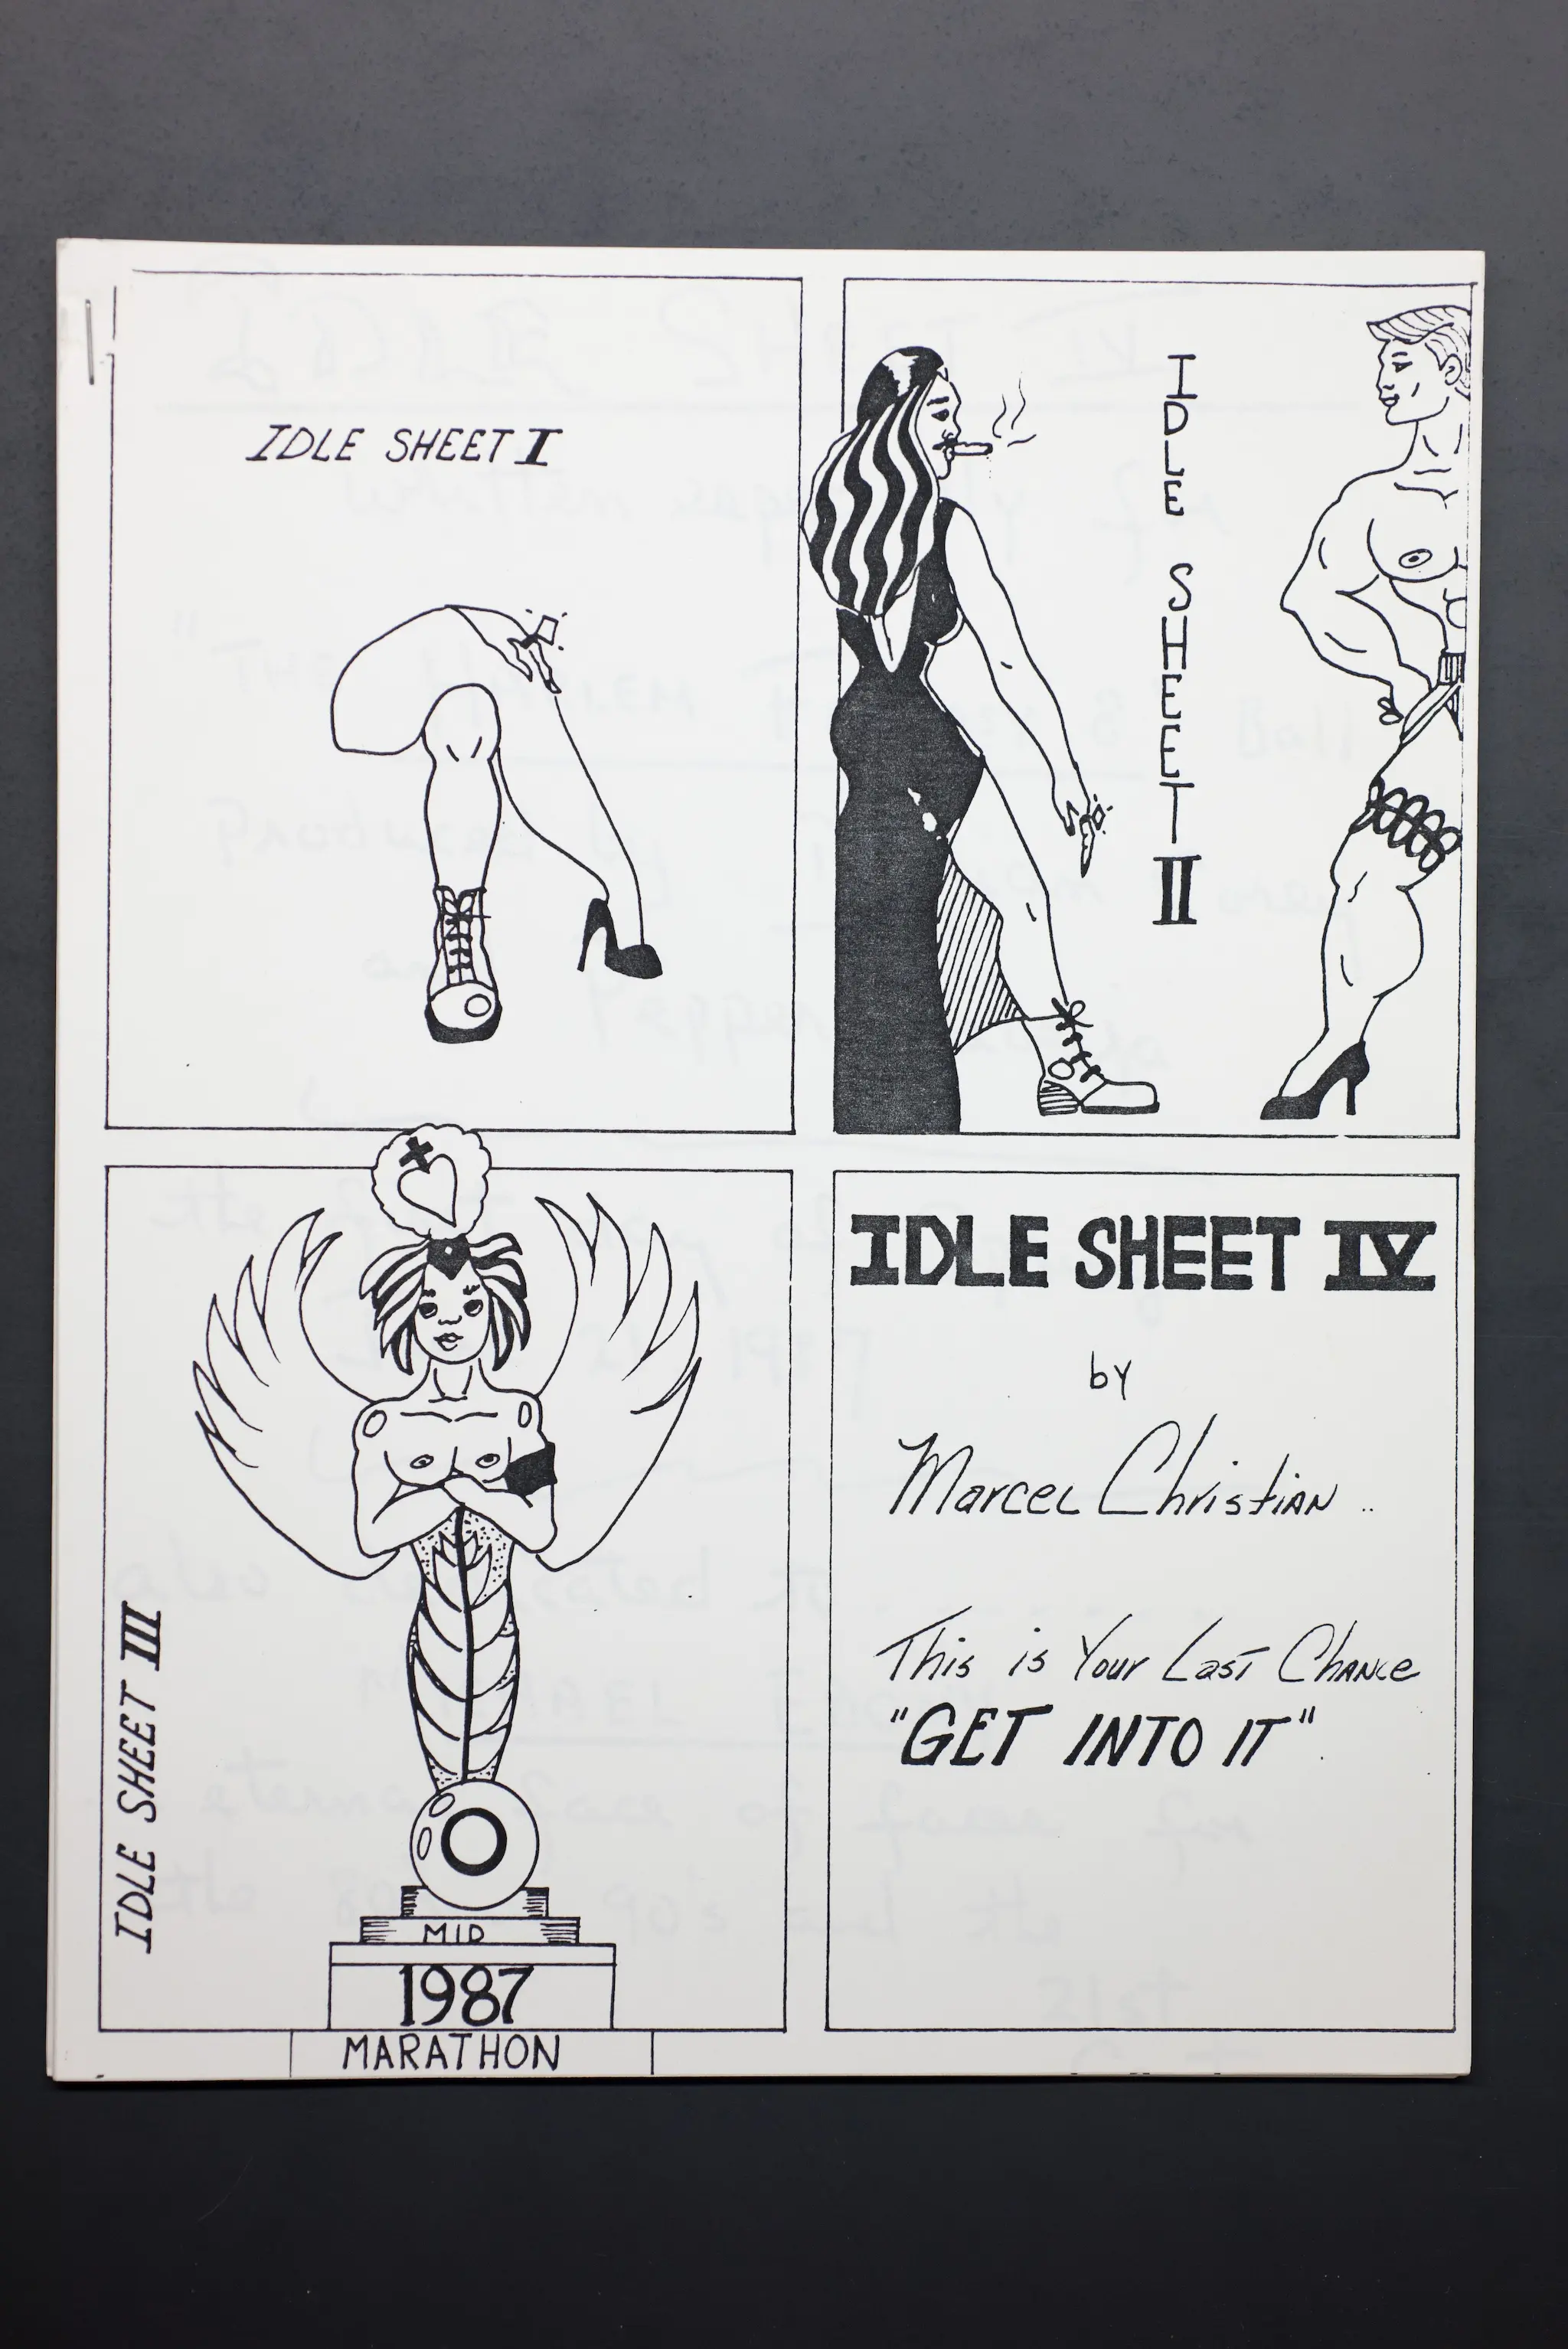 IDLE SHEET I
IDLE SHEET II
IDLE SHEET III
MID
1987
MARATHON
IDLE SHEET IV
by
Marcel Christian ..
This is Your Last Chance
"GET INTO IT".